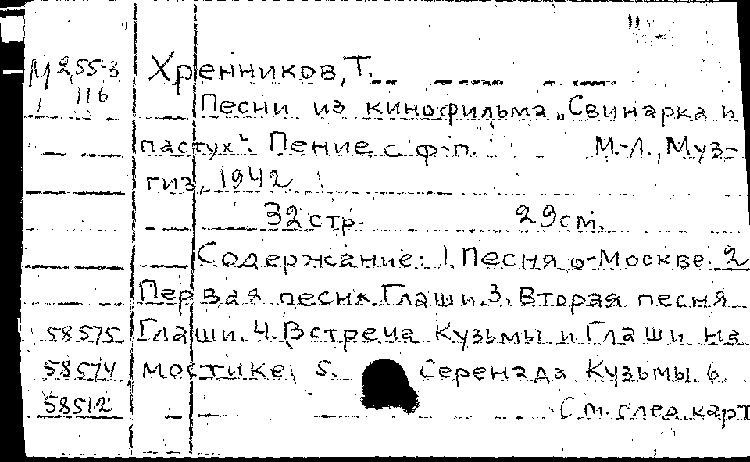 М 255-8
116
Хренников, Т.
Песни из кинофильма „Свинарка и
пастух". Пение с ф-п. М.-Л., Муз-
гиз, 1942
32 стр. 29 см.
Содержание: 1. Песня о Москве. 2
Первая песня Глаши. 3. Вторая песня
58575 Глаши. 4. Встреча Кузьмы и Глаши на
58574 мостике. 5. Серенада Кузьмы. 6.
58512 См. след. карт